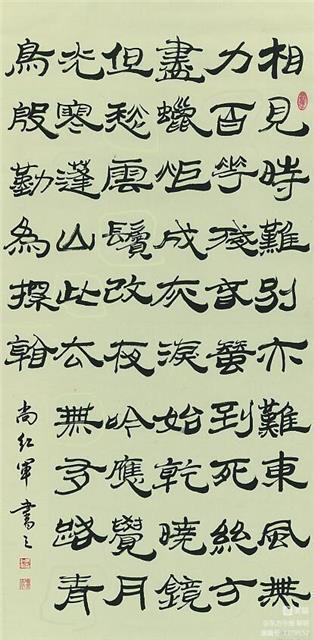 相見時難別亦難東風無
力百花殘春蠶到死絲方
盡蠟炬成灰淚始乾曉鏡
但愁雲鬢改夜吟應覺月
光寒蓬山此去無多路青
鳥殷勤為探看
尚红軍書之